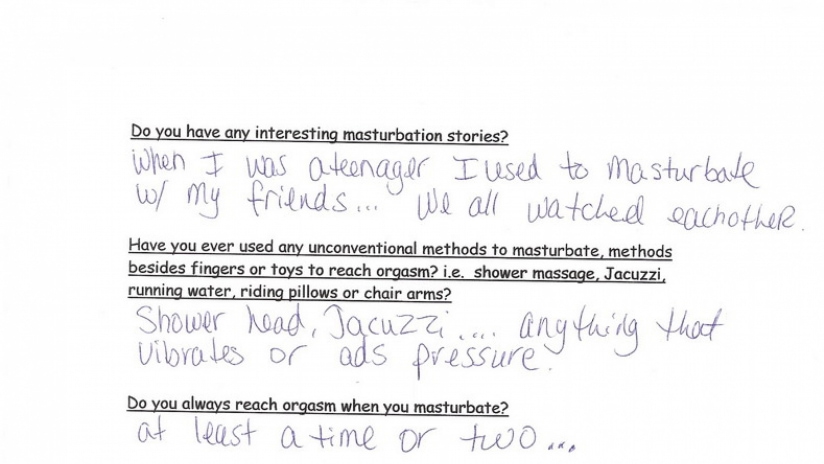 Do you have any interesting masturbation stories?
Have you ever used any unconventional methods to masturbate, methods
besides fingers or toys to reach orgasm? i.e. shower massage, Jacuzzi,
running water, riding pillows or chair arms?
Shower head, Jacuzzi.... anything that
vibrates or ads pressure.
Do you always reach orgasm when you masturbate?
at least a time or two...